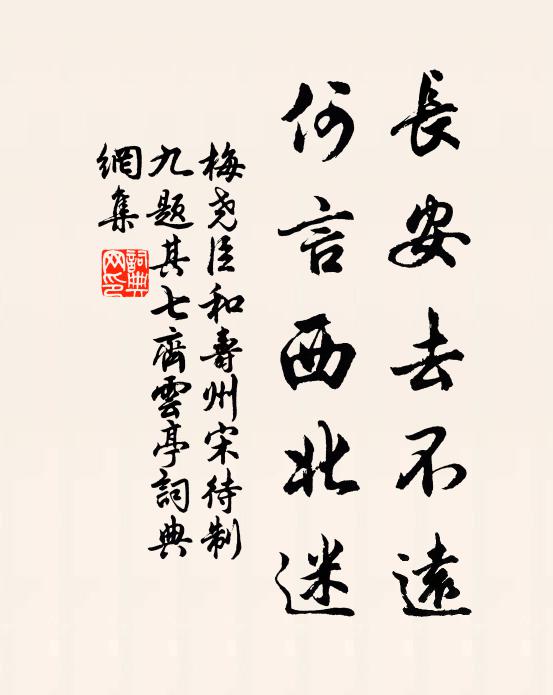 長安去不遠
何言西北迷
梅堯臣和壽州宋待制
九題其七齊雲亭詞典
網集
詞典網印